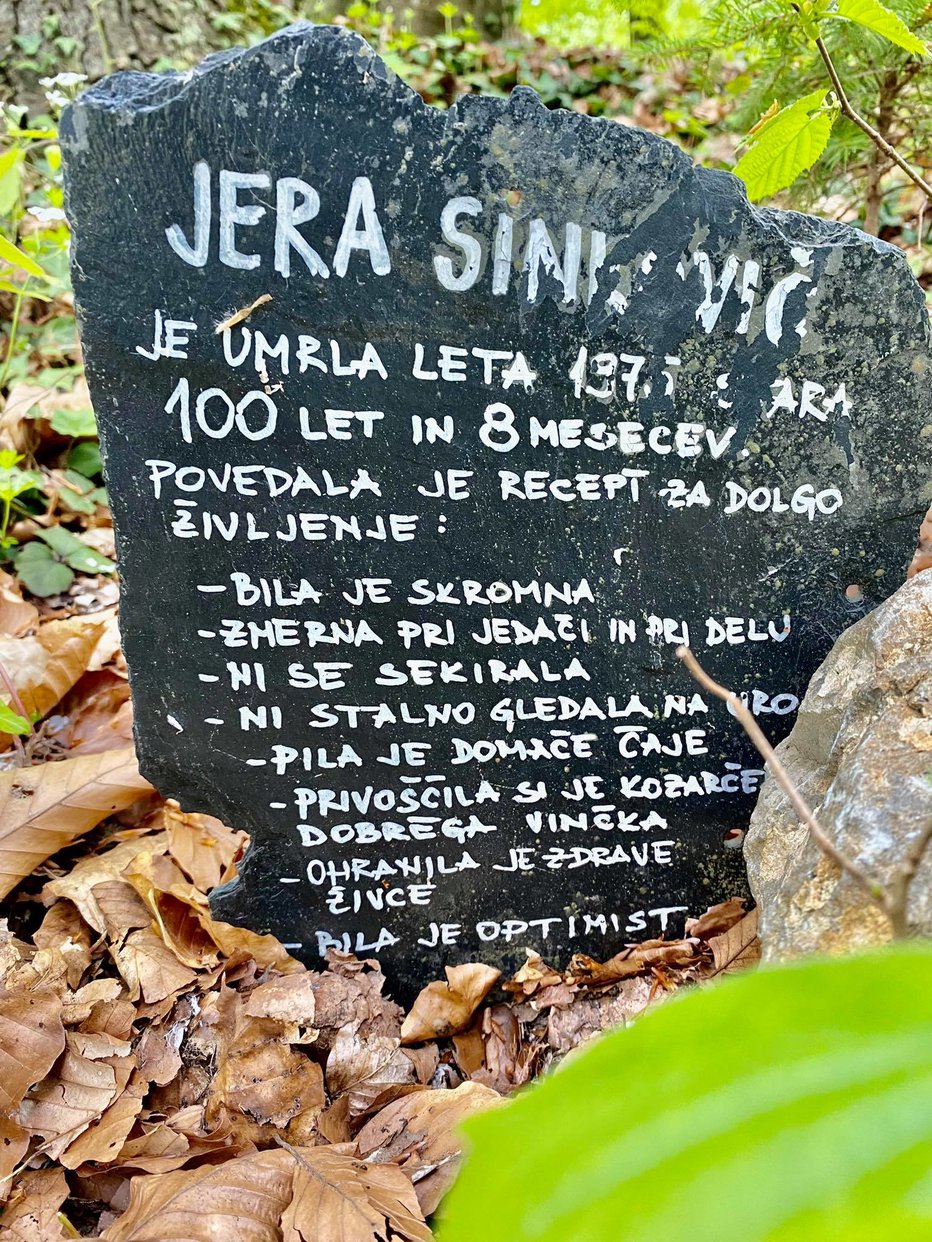 JERA
JE UMRLA LETA
100 LET IN 8 MESECEV.
POVEDALA JE RECEPT ZA DOLGO
ŽIVLJENJE:
- BILA JE SKROMNA
- ZMERNA PRI JEDAČI IN PRI DELU
- NI SE SEKIRALA
- NI STALNO GLEDALA NA
- PILA JE DOMAČE ČAJE
- PRIVOŠČILA SI JE KOZARČEK
DOBREGA VINČKA
- OHRANILA JE ZDRAVE
ŽIVCE
- BILA JE OPTIMIST